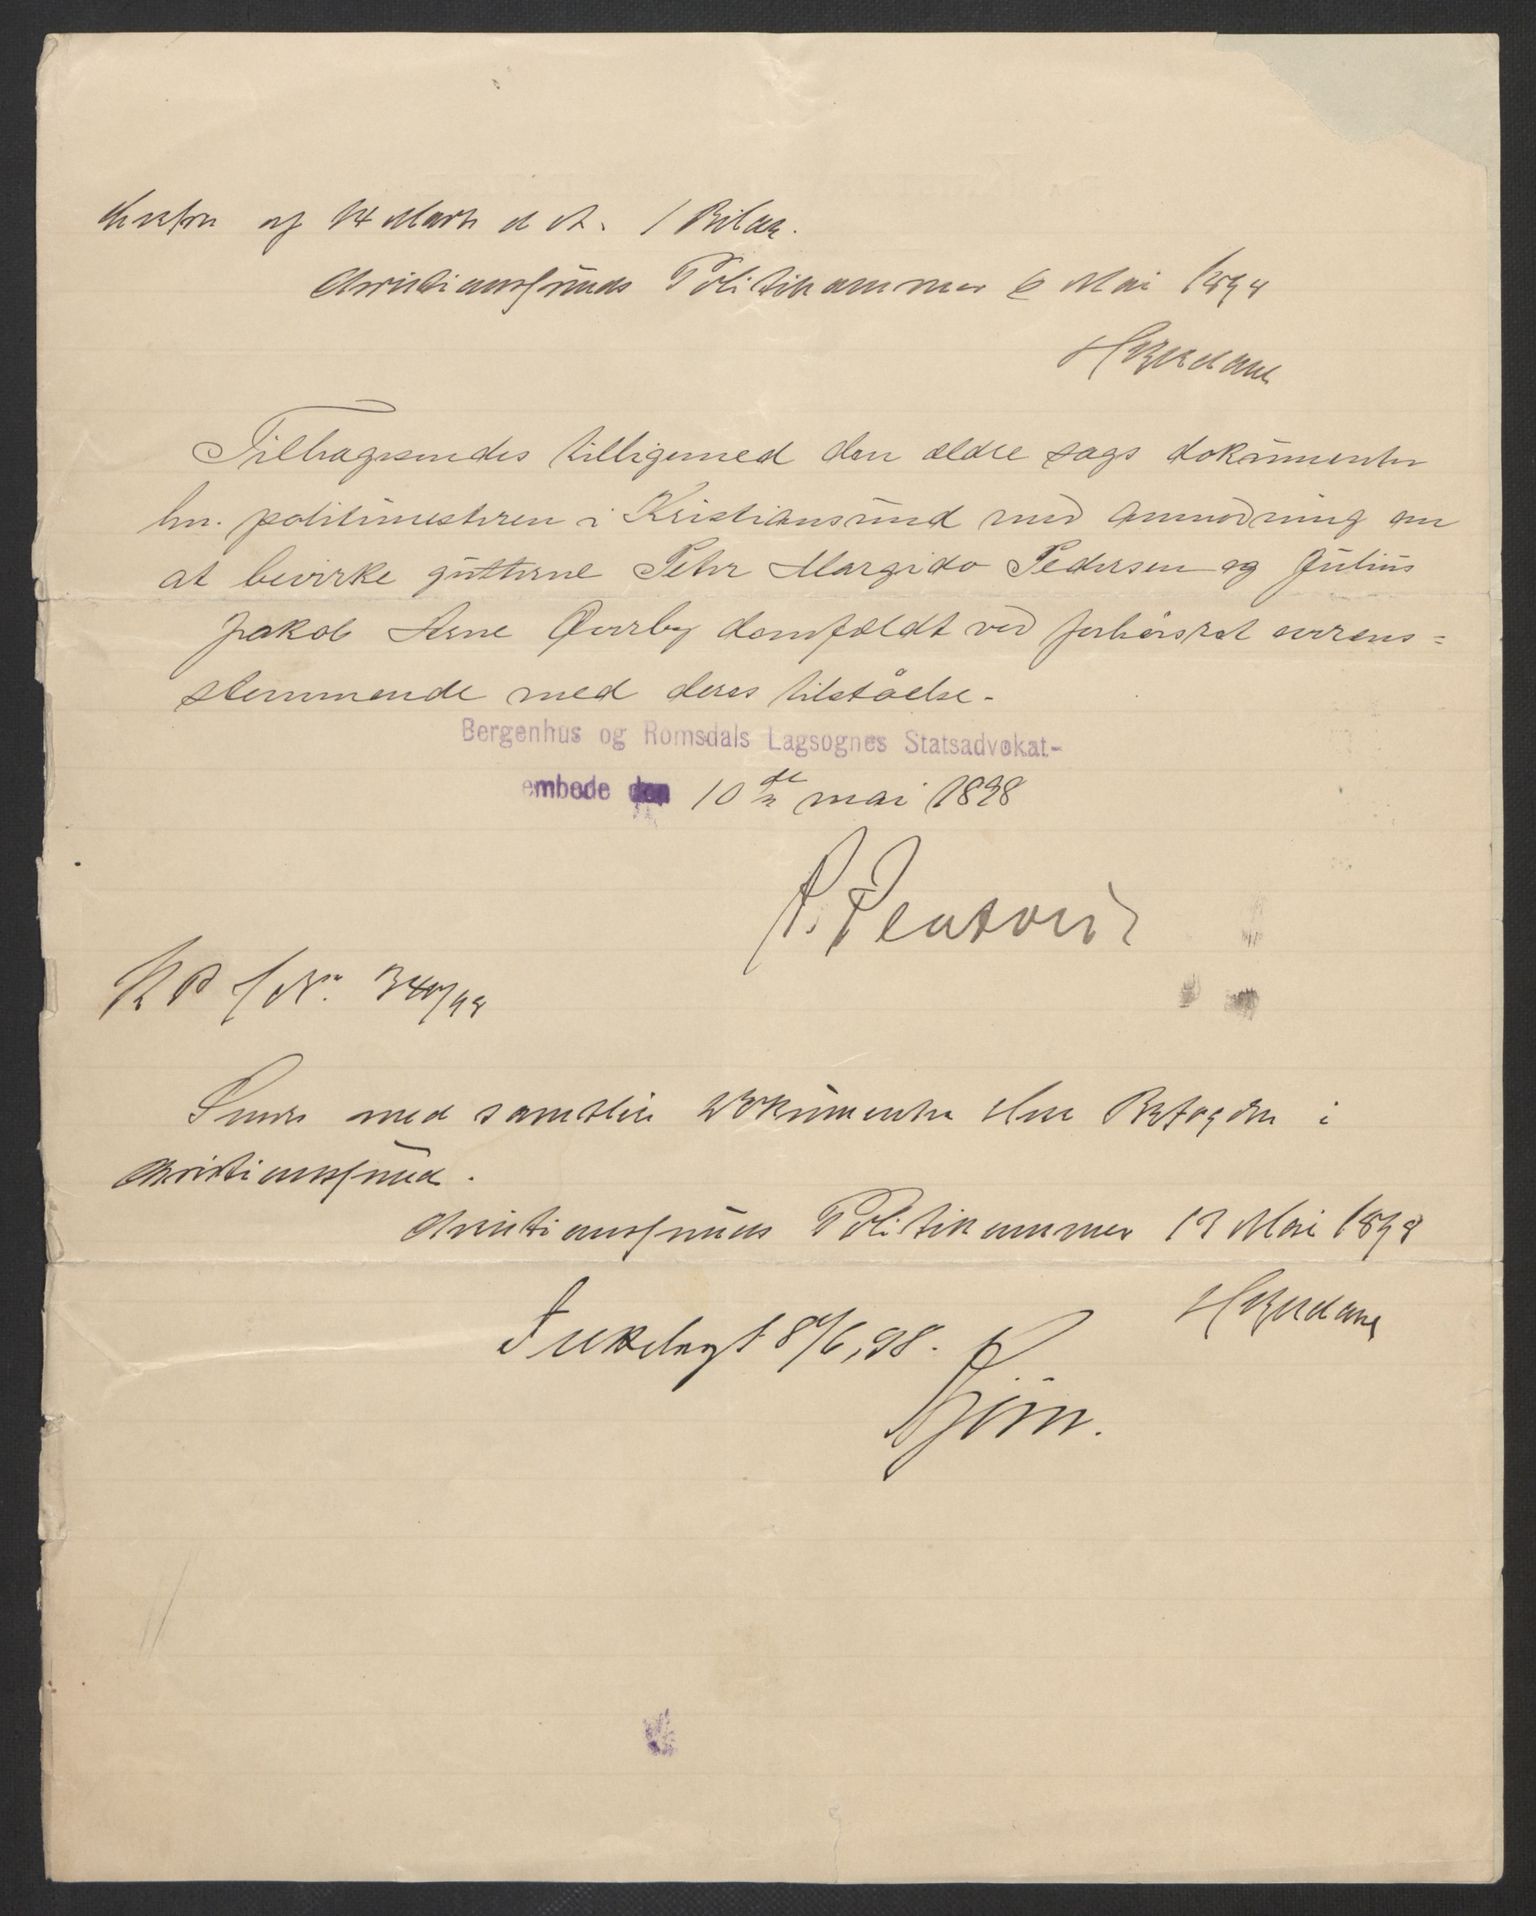 af 14 Marts d A. 1 Bilag.
Christianssunds Politikammer 6 Mai 1898
Tilbagesendes tilligemed den ældre sags dokumenter
hr. politimesteren i Kristiansund med anmodning om
at bevirke gutterne Peter Margido Pedersen og Julius
Jakob Arne Øverby domfældt ved forhørsret overens=
stemmende med deres tilståelse.
Bergenhus og Romsdals Lagsognes Statsadvokat-
embede den 10de mai 1898
K P J. No. 340/98
Sendes med samtlige Dokumenter Herr Byfogden i
Christianssund.
Christianssunds Politikammer 13 Mai 1898
Fremlagt 8/6,98.